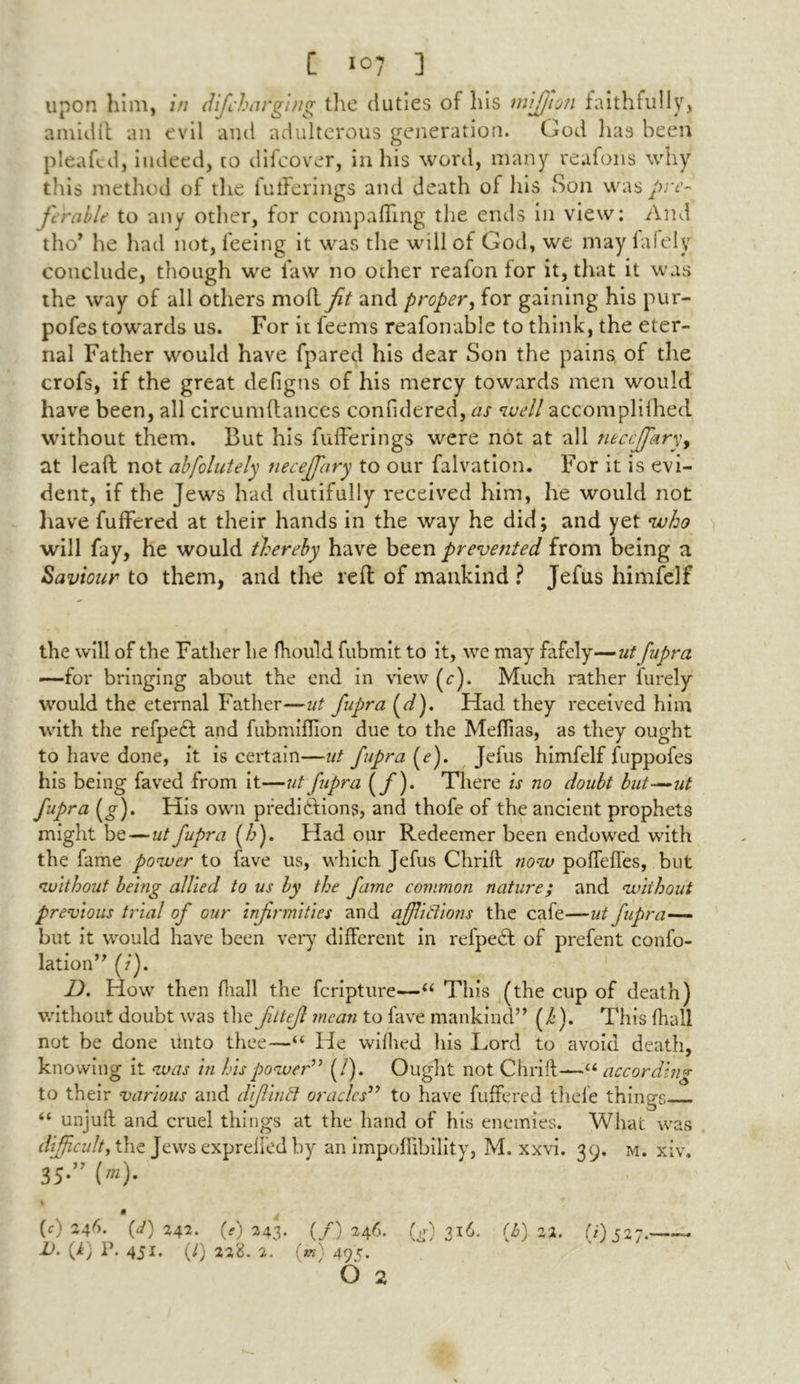 [ 107 ]
upon him, in diſcharging the duties of his miſſion faithfully,
amidſt an evil and adulterous generation. God has been
pleaſed, indeed, to diſcover, in his word, many reaſons why
this method of the ſufferings and death of his Son was pre-
ferable to any other, for compaſſing the ends in view: And
tho' he had not, ſeeing it was the will of God, we may ſafely
conclude, though we ſaw no other reaſon for it, that it was
the way of all others moſt fit and proper, for gaining his pur-
poſes towards us. For it ſeems reaſonable to think, the eter-
nal Father would have ſpared his dear Son the pains of the
croſs, if the great deſigns of his mercy towards men would
have been, all circumſtances conſidered, as well accompliſhed
without them. But his ſufferings were not at all neceſſary,
at leaſt not abſolutely neceſſary to our ſalvation. For it is evi-
dent, if the Jews had dutifully received him, he would not
have ſuffered at their hands in the way he did; and yet who
will ſay, he would thereby have been prevented from being a
Saviour to them, and the reſt of mankind ? Jeſus himſelf
the will of the Father he ſhould ſubmit to it, we may ſafely—ut ſupra
—for bringing about the end in view (c). Much rather ſurely
would the eternal Father—ut ſupra (d). Had they received him
with the reſpect and ſubmiſſion due to the Meſſias, as they ought
to have done, it is certain—ut ſupra (e). Jeſus himſelf ſuppoſes
his being ſaved from it—ut ſupra (f). There is no doubt but—ut
ſupra (g). His own predictions, and thoſe of the ancient prophets
might be—ut ſupra (h). Had our Redeemer been endowed with
the ſame power to ſave us, which Jeſus Chriſt now poſſeſſes, but
without being allied to us by the ſame common nature; and without
previous trial of our infirmities and afflictions the caſe—ut ſupra—
but it would have been very different in reſpect of preſent conſo-
lation” (i).
D. How then ſhall the ſcripture—“ This (the cup of death)
without doubt was the fitteſt mean to ſave mankind” (k). This ſhall
not be done unto thee—“ He wiſhed his Lord to avoid death,
knowing it was in his power” (l). Ought not Chriſt—“ according
to their various and diſtinct oracles” to have ſuffered theſe things—
“ unjuſt and cruel things at the hand of his enemies. What was
difficult, the Jews expreſſed by an impoſſibility, M. xxvi. 39. M. xiv.
35.” (m).
(c) 246. (d) 242. (e) 243. (f) 246. (g) 316. (h) 22. (i) 527.——
D. (k) P. 451. (l) 228. 2. (m) 495.
O 2